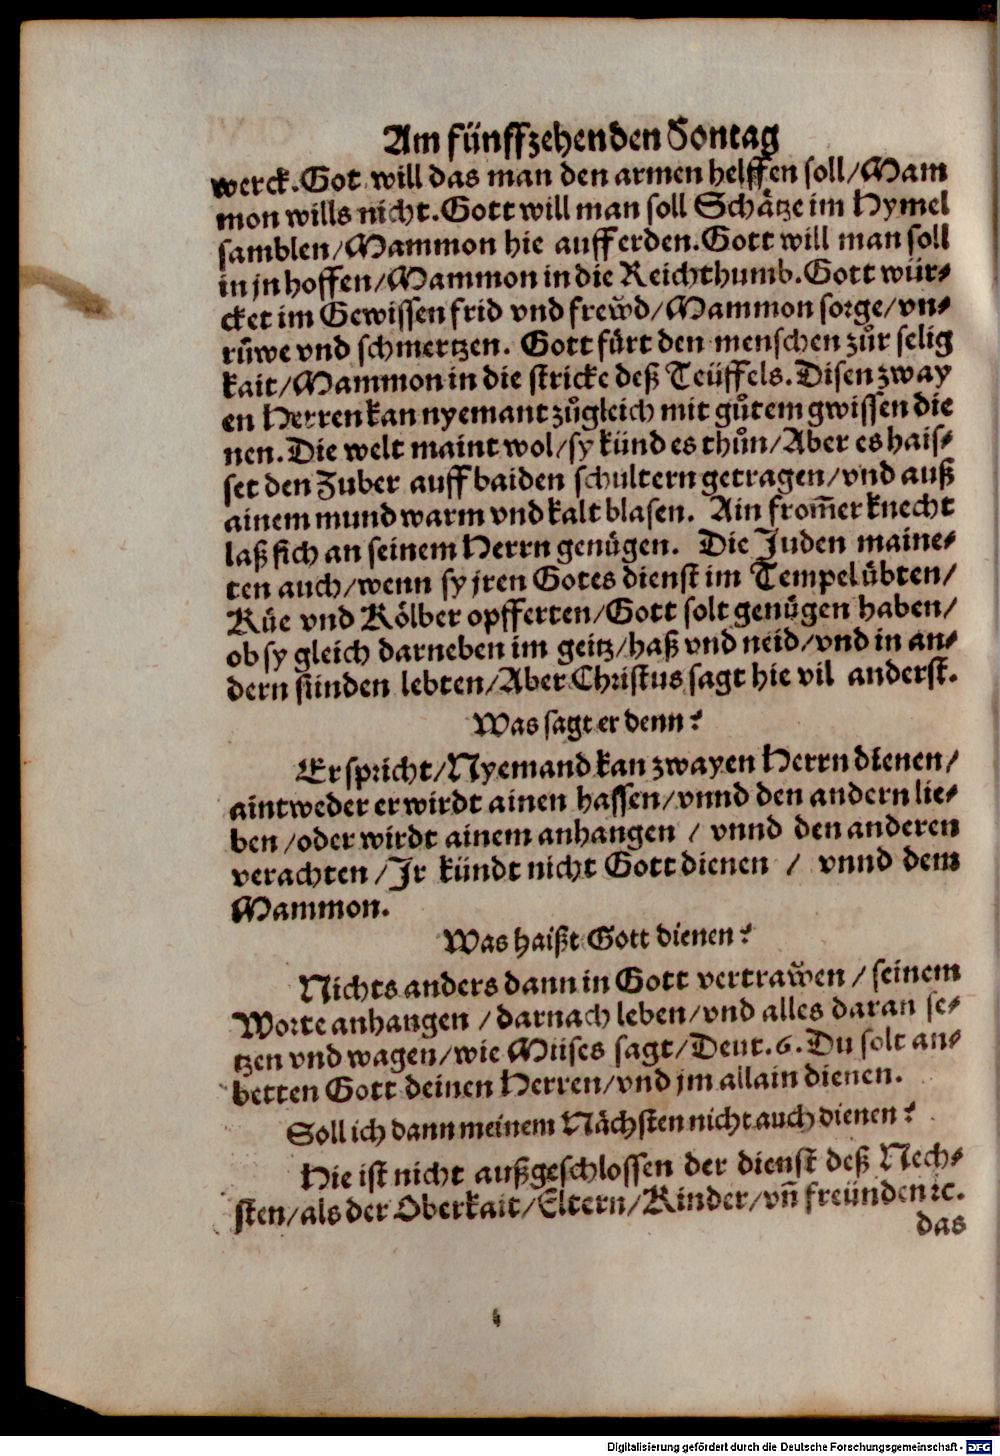 Am fünffzehenden Sontag
werck. Got will das man den armen helffen soll/Mam
mon wills nicht. Gott will man soll Schätze im Hymel
samblen/Mammon hie auff erden. Gott will man soll
in jn hoffen/Mammon in die Reichthumb. Gott wür⸗
cket im Gewissen frid vnd frewͤd/Mammon sorge/vn⸗
růwe vnd schmertzen. Gott fürt den menschen zůr selig
kait/Mammon in die stricke deß Teüffels. Disen zway
en Herren kan nyemant zůgleich mit gůtem gwissen die
nen. Die welt maint wol/sy künd es thůn/Aber es hais⸗
set den Zuber auff baiden schultern getragen/vnd auß
ainem mund warm vnd kalt blasen. Ain from̄er knecht
laß sich an seinem Herrn genügen. Die Juden maine⸗
ten auch/wenn sy jren Gotes dienst im Tempel übten/
Küe vnd Kölber opfferten/Gott solt genügen haben/
ob sy gleich darneben im geitz/haß vnd neid/vnd in an⸗
dern sünden lebten/Aber Christus sagt hie vil anderst.
Was sagt er denn?
Er spricht/Nyemand kan zwayen Herrn dienen/
aintweder er wirdt ainen hassen/vnnd den andern lie⸗
ben/oder wirdt ainem anhangen / vnnd den anderen
verachten/Jr kündt nicht Gott dienen / vnnd dem
Mammon.
Was haißt Gott dienen?
Nichts anders dann in Gott vertrawͤen / seinem
Worte anhangen / darnach leben/vnd alles daran se⸗
tzen vnd wagen/wie Müses sagt/Deut. 6. Du solt an⸗
betten Gott deinen Herren/vnd jm allain dienen.
Soll ich dann meinem Nächsten nicht auch dienen?
Hie ist nicht außgeschlossen der dienst deß Nech⸗
sten/als der Oberkait/Eltern/Kinder/vn̄ freünden ꝛc.
das
Digitalisierung gefördert durch die Deutsche Forschungsgemeinschaft - DFG